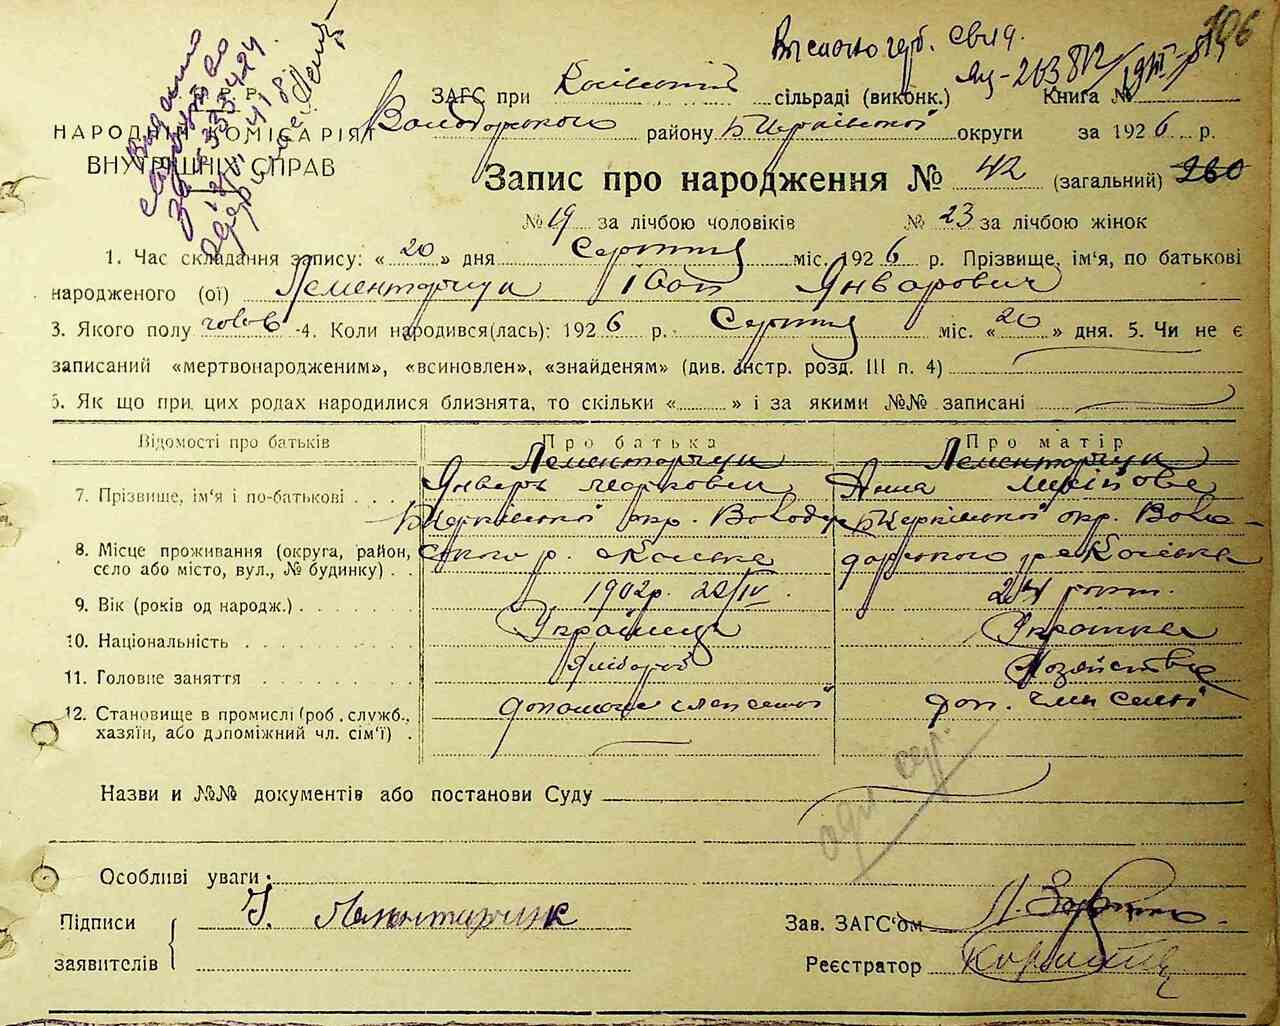 106
Выслано
Книга №
У. С. Р. Р.
ЗАГС при сільраді (виконк.)
НАРОДНІЙ КОМІСАРІЯТ
Володарського району Б Церківської округи за 1926 р.
ВНУТРІШНІХ СПРАВ
Запис про народження № 42 (загальний) 260
№ 19 за лічбою чоловіків № 23 за лічбою жінок
1. Час складання запису: «20» дня Серпня міс. 1926 р. Прізвище, ім'я, по батькові
народженого (ої) Лементарчук Іван Январович
3. Якого полу чолов 4. Коли народився(лась): 1926 р. Серпня міс. «20» дня. 5. Чи не є
записаний «мертвонародженим», «всиновлен», «знайденям» (див. інстр. розд. III п. 4)
6. Як що при цих родах народилися близнята, то скільки « » і за якими №№ записані
Відомості про батьків Про батька Про матір
Лементарчук Лементарчук
7. Прізвище, ім'я і по-батькові Январь Маркович Анна
Б Церківської окр. Володар Б Церківської окр. Воло-
8. Місце проживання (округа, район, ського р. дарського р.
село або місто, вул., № будинку)
9. Вік (років од народж.) 1902р. 24 рок.
10. Національність Українець Українка
11. Головне заняття Хлібороб Хозяйство
12. Становище в промислі (роб., служб., допомож член семьї доп. член семьї
хазяїн, або допоміжний чл. сім'ї)
Назви и №№ документів або постанови Суду
Особливі уваги:
Підписи Лементарчук Зав. ЗАГС'ом
заявителів Реєстратор